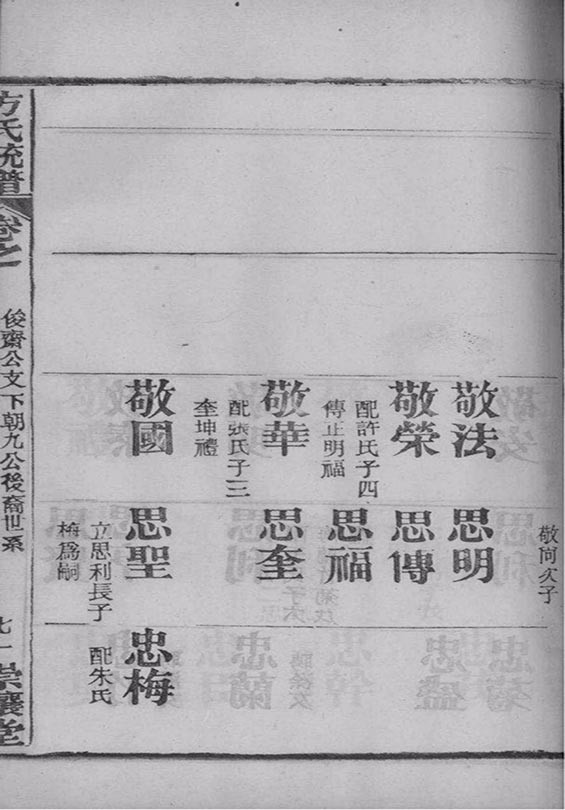 敬法
敬榮
配許氏子四
傳正明福
敬華
配張氏子三
奎坤禮
敬國
敬尚次子
思明
思傳
思福
思奎
思聖
立思利長子
梅爲嗣
忠梅
配朱氏
方氏統譜
卷之
俊齋公文下朝九公後裔世系
七一
崇讓堂